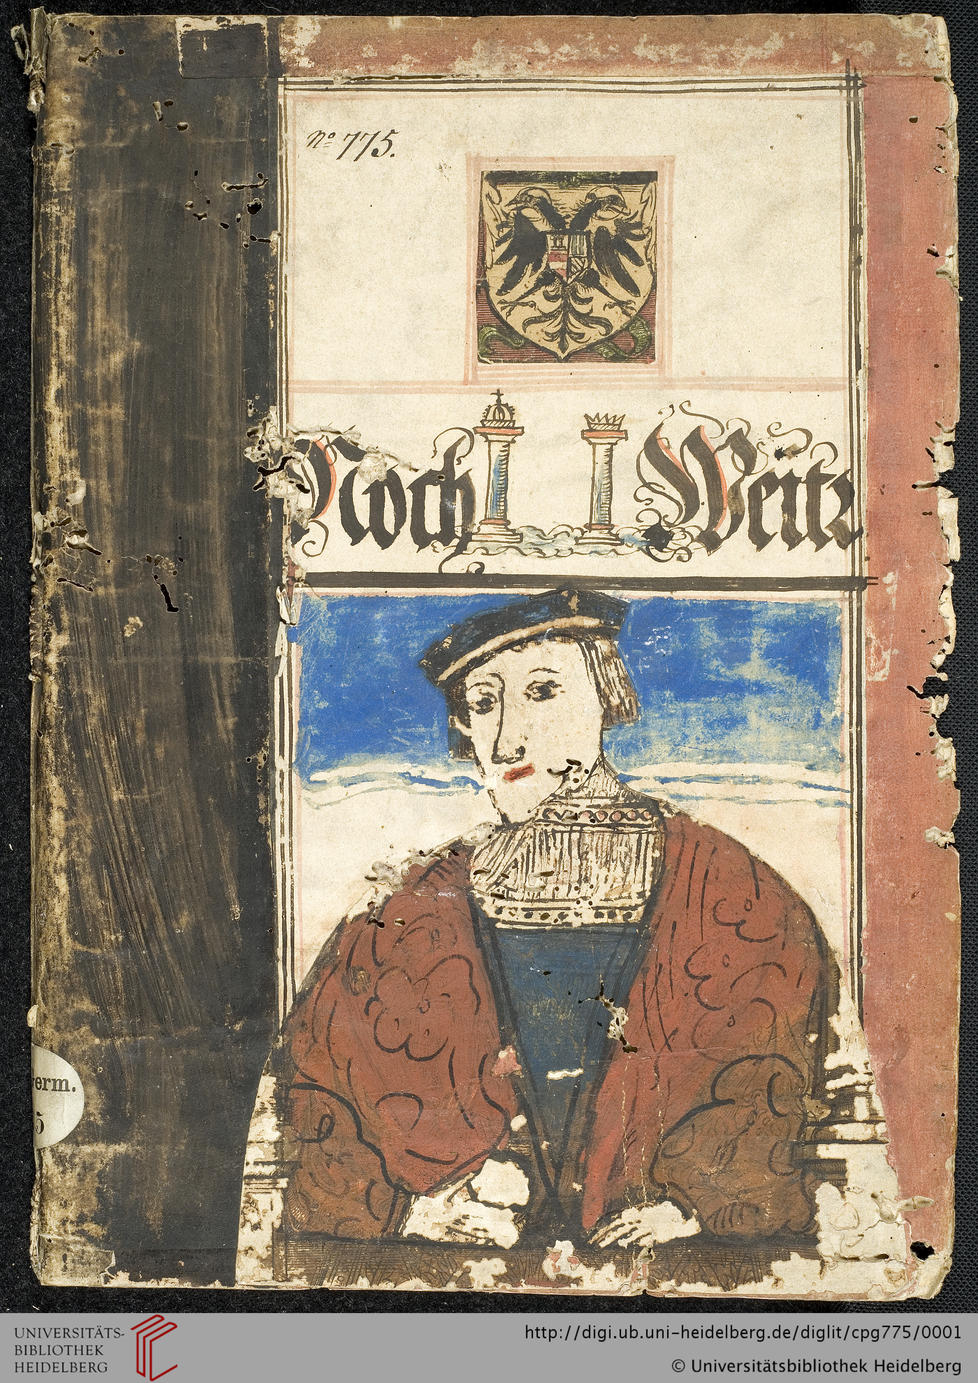 Nº 775.
Noch Weitr
erm.
5
UNIVERSITÄTS-
BIBLIOTHEK
HEIDELBERG
http://digi.ub.uni-heidelberg.de/diglit/cpg775/0001
© Universitätsbibliothek Heidelberg